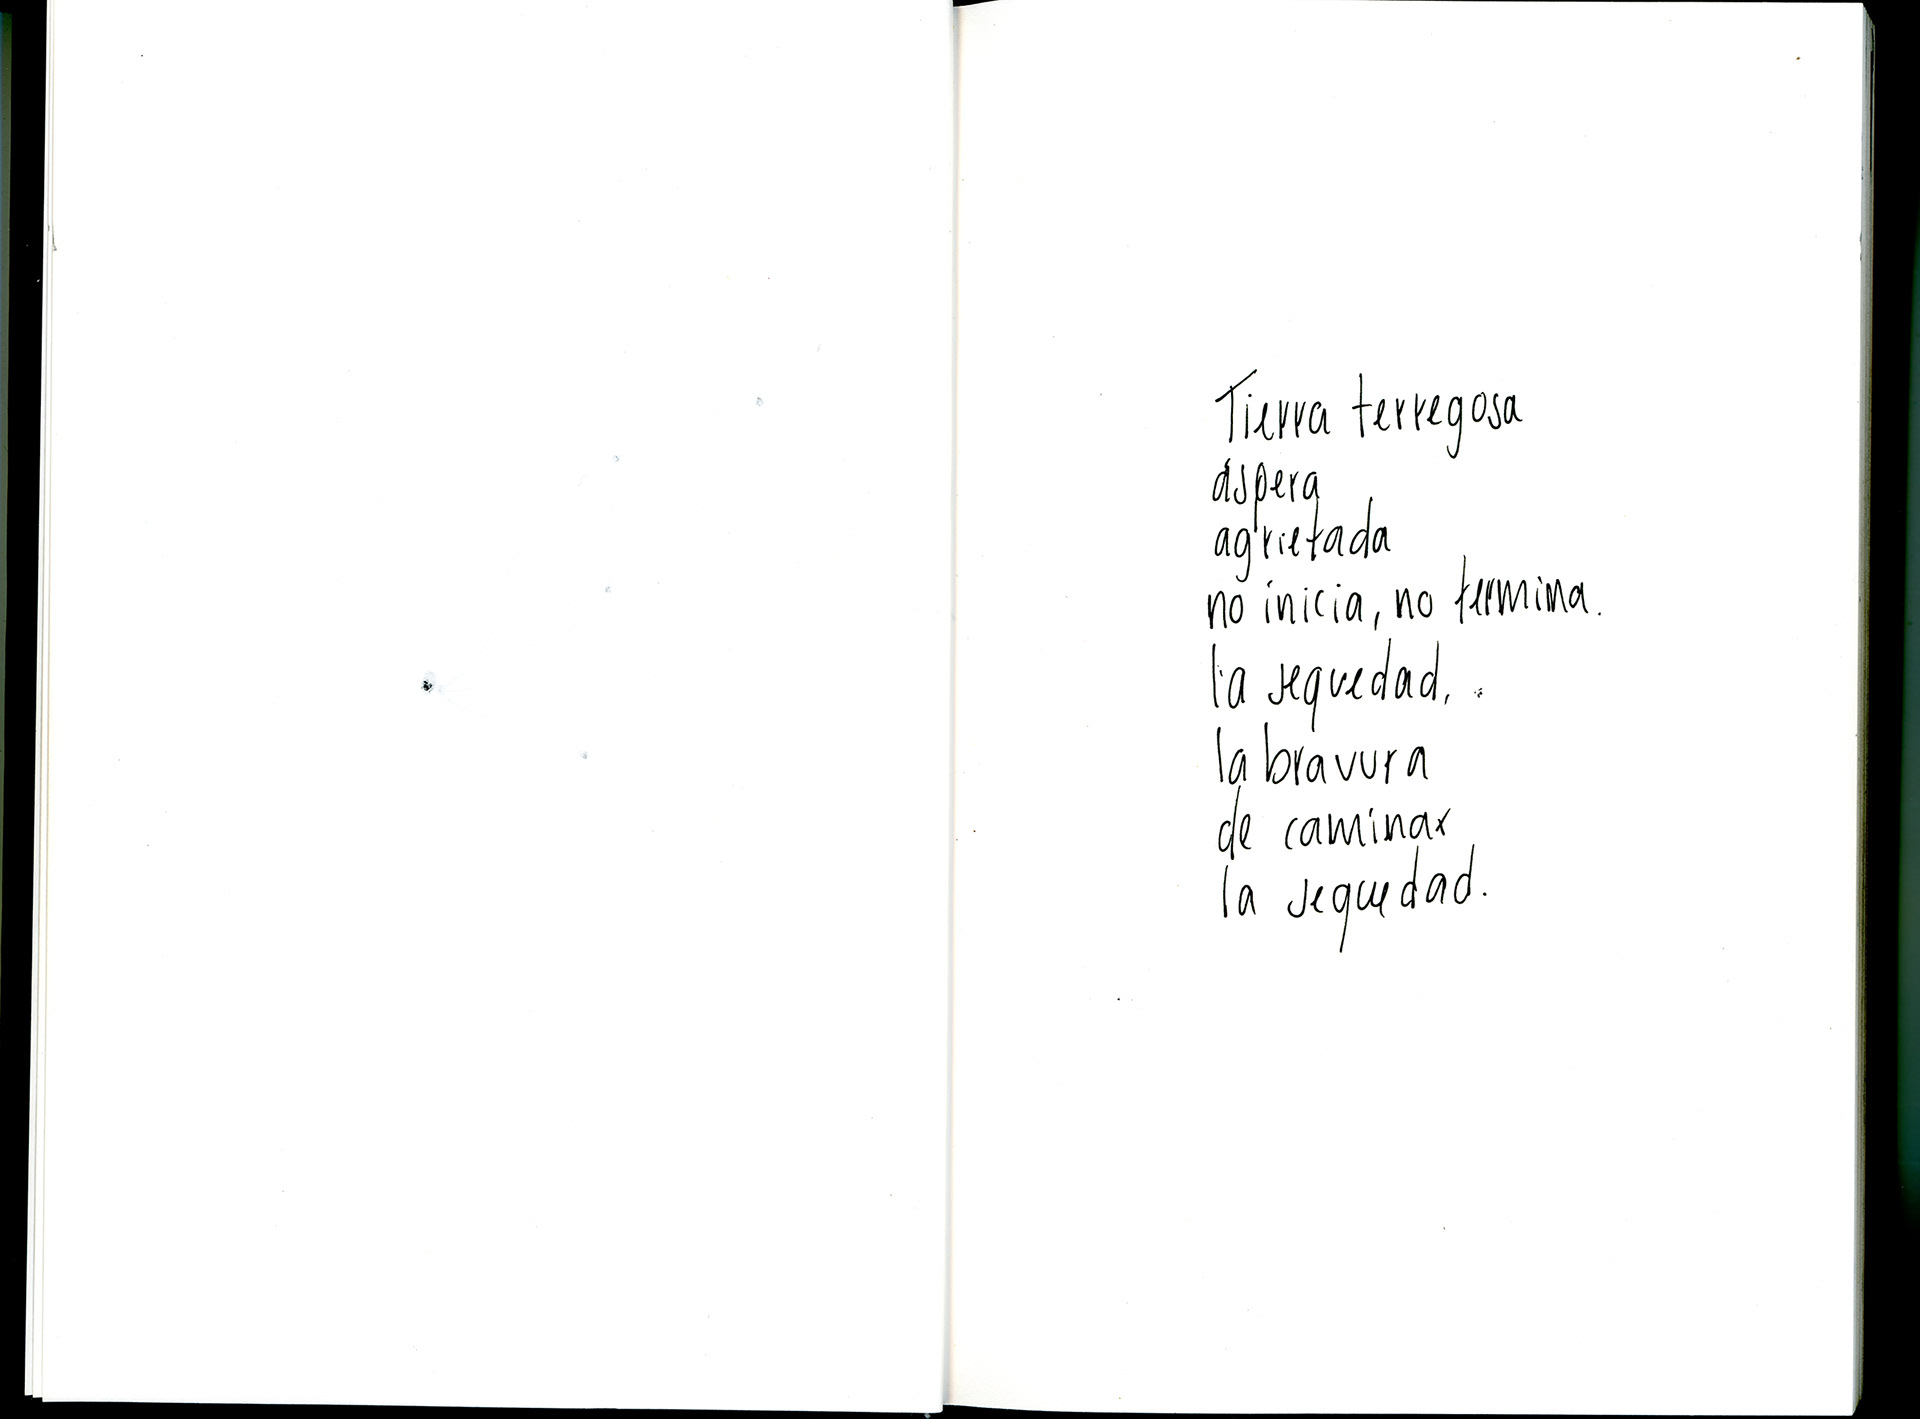 Tierra terregosa
áspera
agrietada
no inicia, no termina.
la sequedad,
la bravura
de caminar
la sequedad.